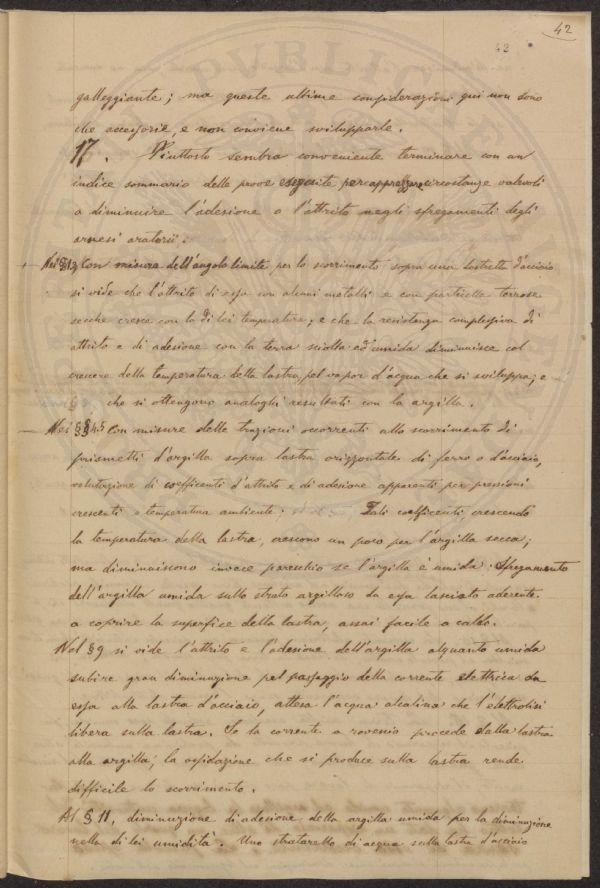 42
42
galleggiante; ma queste ultime considerazioni qui non sono
che accessorie, e non conviene svilupparle.
17. Piuttosto sembra conveniente terminare con un
indice sommario delle prove eseguite, per apprezzare circostanze valevoli
a diminuire l'adesione o l'attrito negli sfregamenti degli
arnesi aratorii.
Nei § 1,2 Con misura dell'angolo limite, per lo scorrimento sopra una lastretta d'acciaio
si vide che l'attrito di essa con alcuni metalli e con particelle terrose
secche cresce con la di lei temperatura; e che la resistenza complessiva di
attrito e di adesione con la terra sciolta ed umida diminuisce col
crescere della temperatura della lastra, pel vapor d'acqua che si sviluppa; e
che si ottengono analoghi resultati con la argilla.
Nei §§ 4.5 Con misure delle trazioni occorrenti allo scorrimento di
prismetti d'argilla sopra lastra orizzontale di ferro o d'acciaio,
valutazione di coefficenti d'attrito e di adesione apparenti per pressioni
crescenti e temperatura ambiente; Tali coefficenti, crescendo
la temperatura della lastra, crescono un poco per l'argilla secca;
ma diminuiscono invece parecchio se l'argilla è umida. Sfregamento
dell'argilla umida sullo strato argilloso da essa lasciato aderente
a coprire la superfice della lastra, assai facile a caldo.
Nel § 9 si vide l'attrito e l'adesione dell'argilla alquanto umida
subire gran diminuzione pel passaggio della corrente elettrica da
essa alla lastra d'acciaio, attesa l'acqua alcalina che l'elettrolisi
libera sulla lastra. Se la corrente a rovescio procede dalla lastra
alla argilla, la ossidazione che si produce sulla lastra rende
difficile lo scorrimento.
Al § 11, diminuzione di adesione della argilla umida per la diminuzione
nella di lei umidità. Uno straterello di acqua sulla lastra d'acciaio